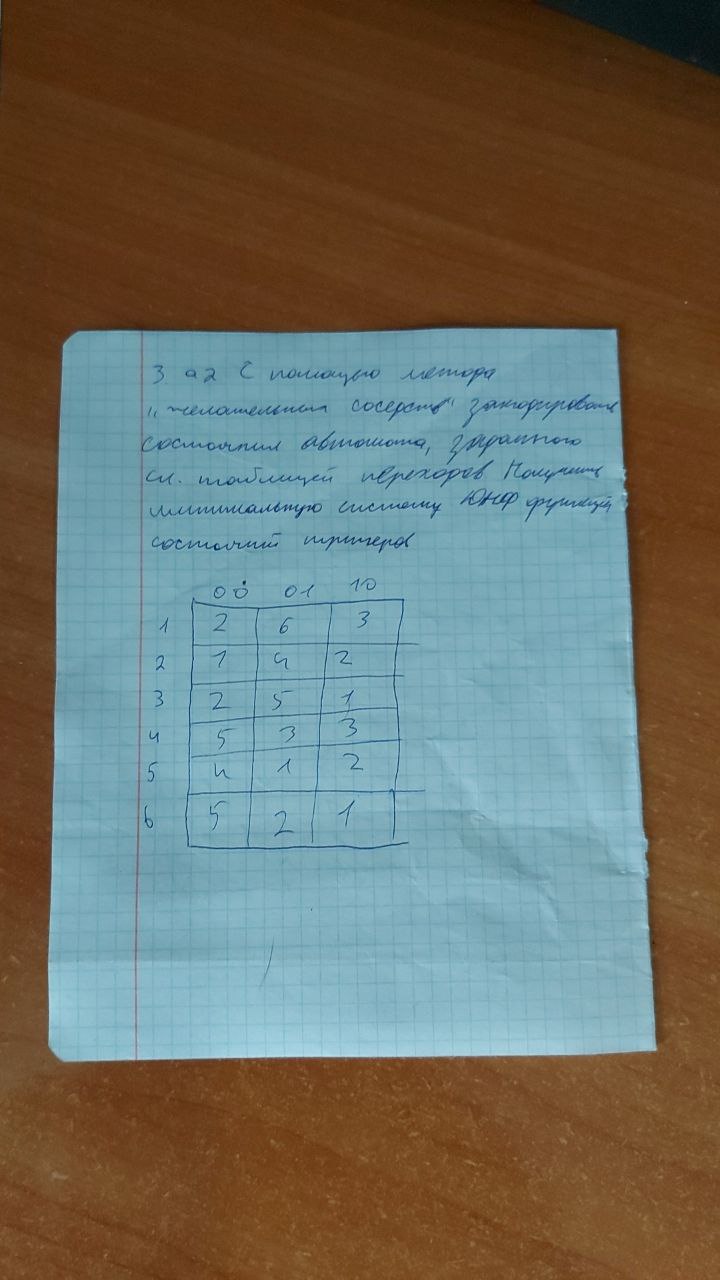 3 а2 С помощью метода
„желательных соседств" закодировать
состояния автомата, заданного
сл. таблицей переходов Получить
минимальную систему ДНФ функций
состояний триггеров
00 01 10
1 2 6 3
2 1 4 2
3 2 5 1
4 5 3 3
5 4 1 2
6 5 2 1